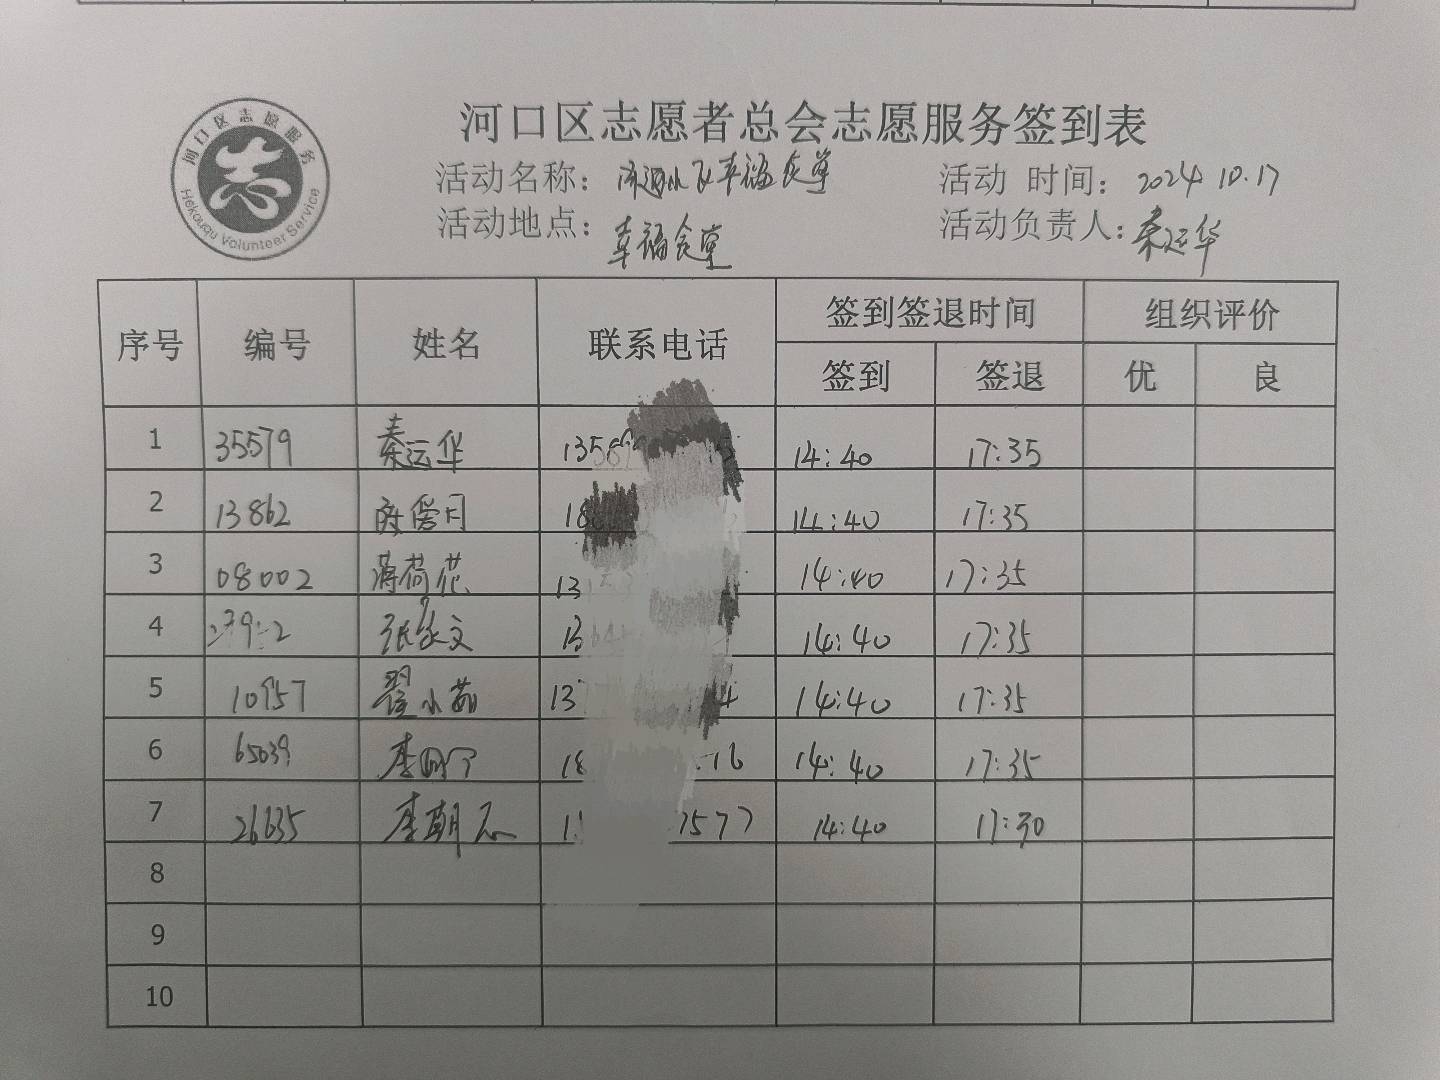 河口区志愿服务
Hekouqu Volunteer Service
河口区志愿者总会志愿服务签到表
活动名称：幸福食堂 活动 时间：2024 10.17
活动地点：幸福食堂 活动负责人：秦运华
序号 编号 姓名 联系电话 签到签退时间 组织评价
签到 签退 优 良
1 35579 秦运华 1356 14:40 17:35
2 13862 18 14:40 17:35
3 08002 薄荷花 13 14:40 17:35
4 13 14:40 17:35
5 10957 翟小茹 13 4 14:40 17:35
6 65039 18 16 14:40 17:35
7 26635 李朝 1 7577 14:40 17:30
8
9
10